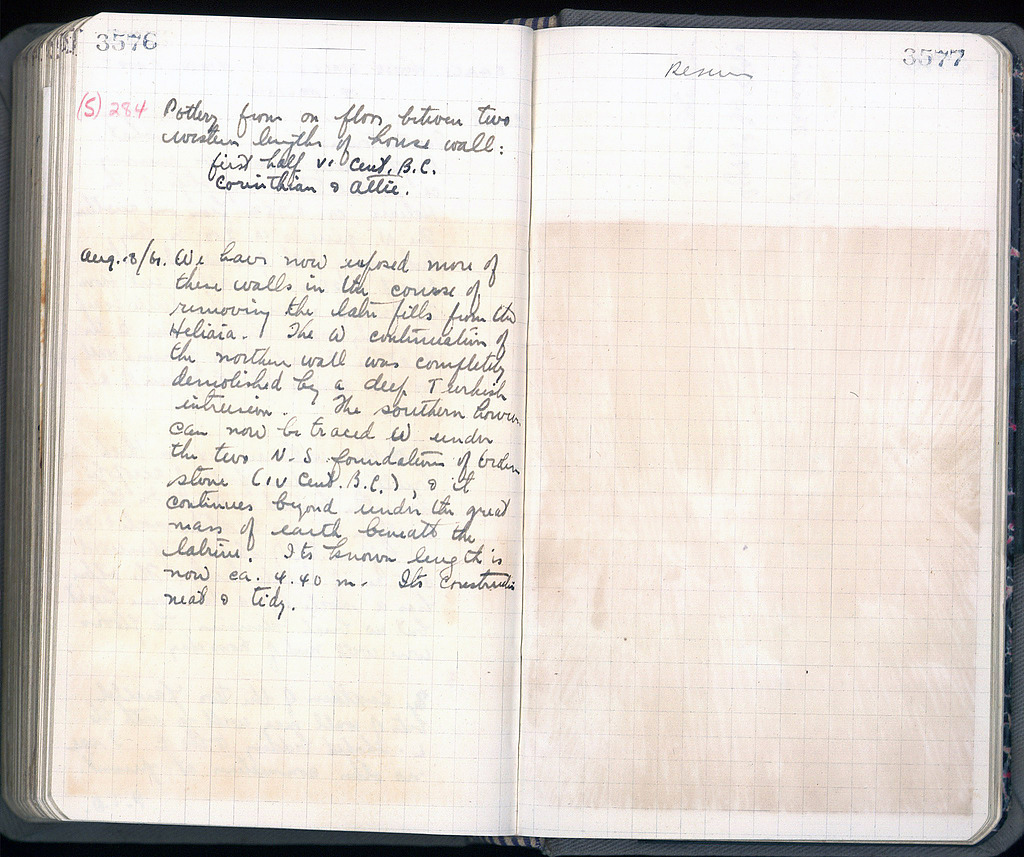 3576
(S) 284 Pottery from on floor between two
western lengths of house wall:
first half V. Cent. B.C.
Corinthian & Attic.
Aug. 8/61. We have now exposed more of
these walls in the course of
removing the later fills from the
Heliaia. The W continuation of
the northern wall was completely
demolished by a deep Turkish
intrusion. The southern however
can now be traced W under
the two N-S foundations of
stone (IV Cent. B.C.), & it
continues beyond under the great
mass of earth beneath the
latrine. Its known length is
now ca. 4.40 m. Its construction
neat & tidy.
3577